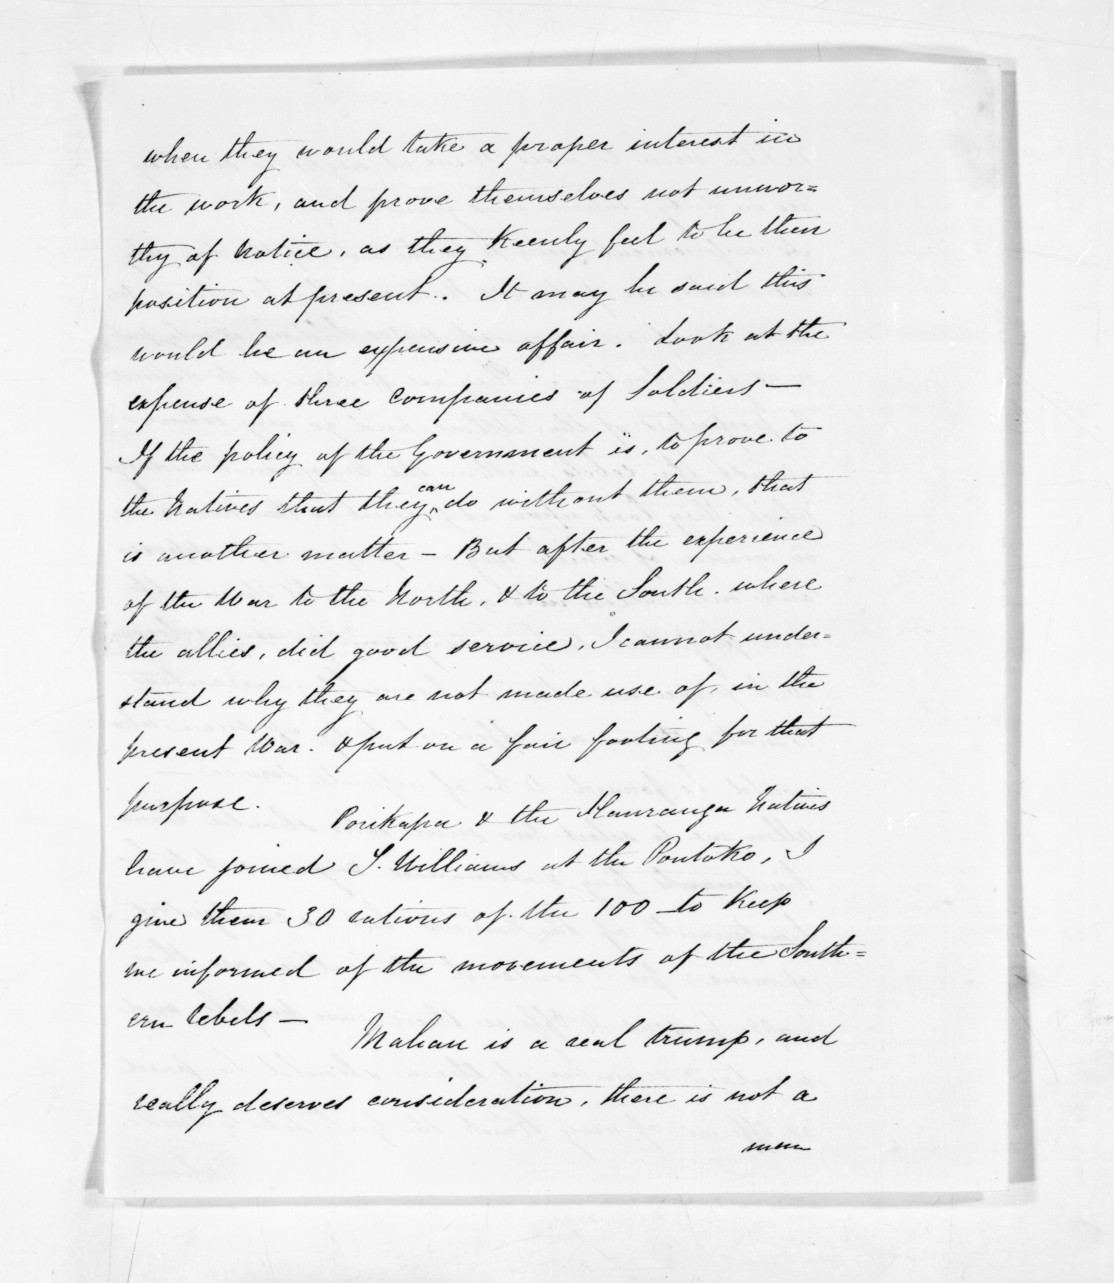 when they would take a proper interest in
the work, and prove themselves not unwor=
thy of notice, as they keenly feel to be their
position at present.. It may be said this
would be an expensive affair. Look at the
expense of three companies of Soldiers —
If the policy of the Government is, to prove to
the Natives that they can do without them, that
is another matter – But after the experience
of the War to the North, & to the South. where
the allies, did good service, I cannot under=
stand why they are not made use of, in the
present War. & put on a fair footing for that
purpose.
Porikapa & the Hauranga Natives
have joined S. Williams at the Poutoko, I
give them 30 rations of the 100 to keep
me informed of the movements of the South=
ern rebels —
Mahau is a real trump, and
really deserves consideration, there is not a
man